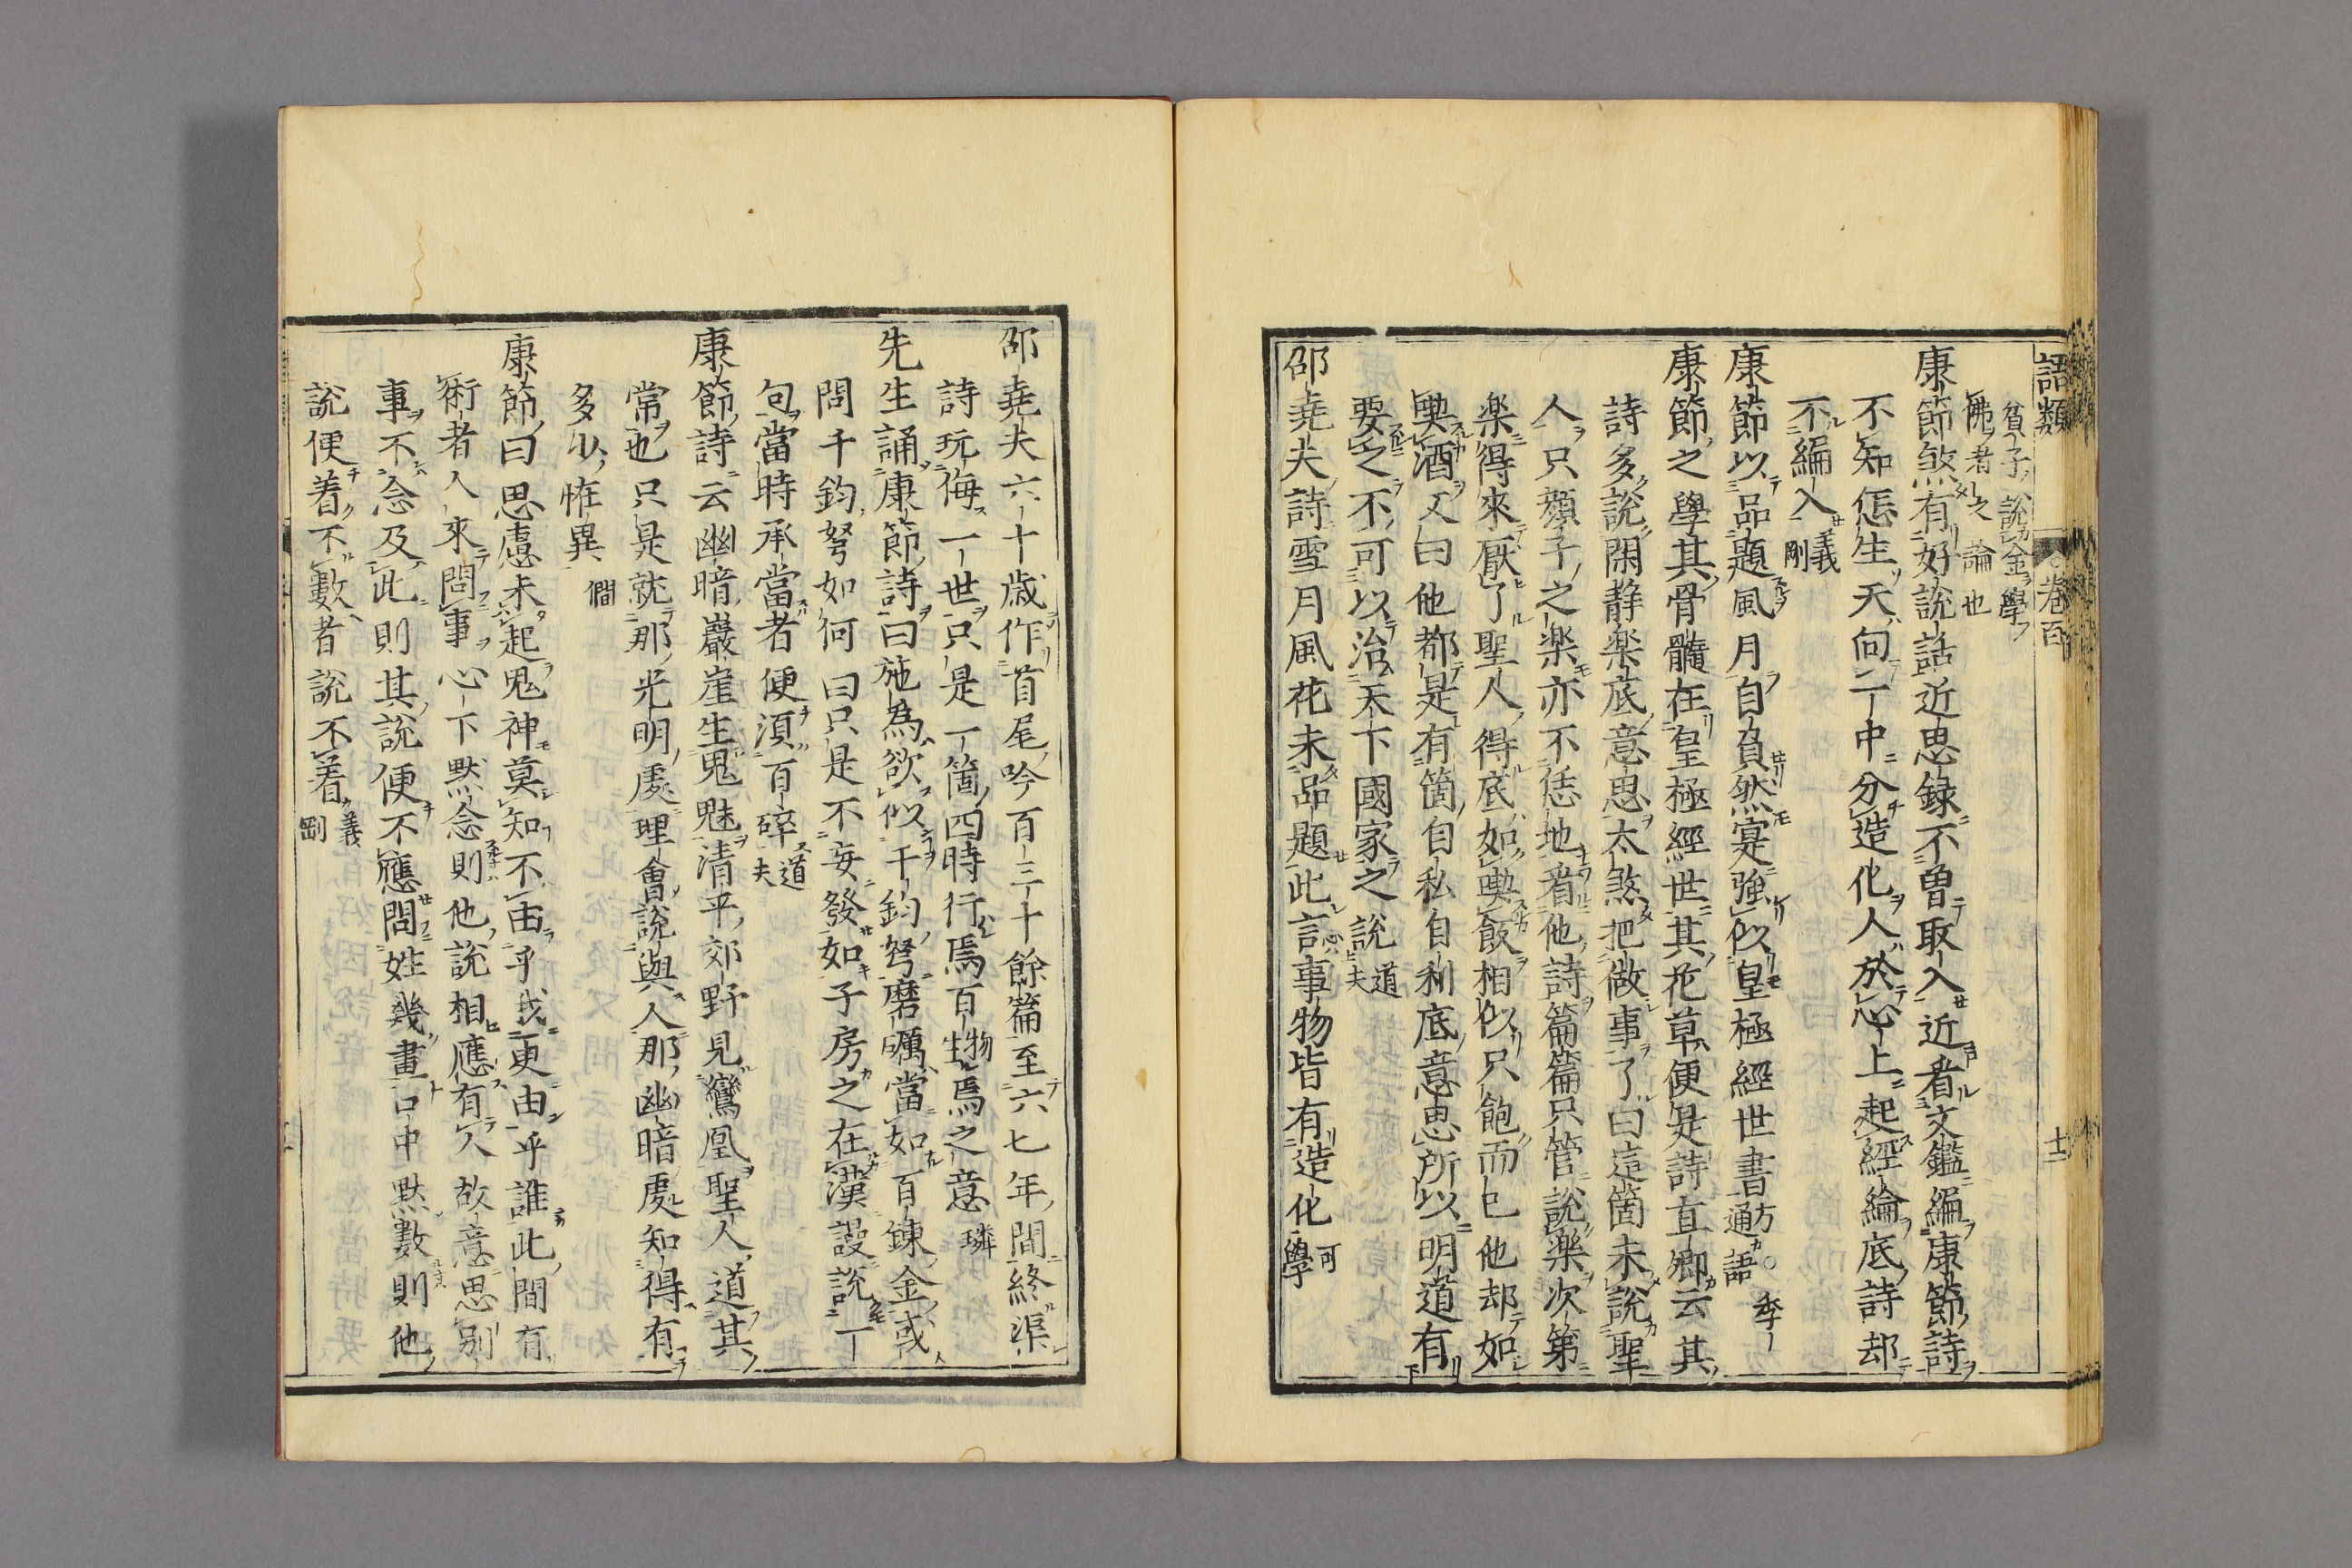 語類
卷百
十二
貧子說金學
佛者之論也
康節煞有好說話近思錄不曾取入近看文鑑編康節詩
不知怎生天向一中分造化人於心上起經綸底詩却
不編入義剛
康節以品題風月自負然寔強似皇極經世書方通語。季
康節之學其骨髓在皇極經世其花草便是詩直卿云其
詩多說閑静楽底意思太煞把做事了曰這箇未說聖
人只顔子之楽亦不恁地看他詩篇篇只管說楽次第
楽得來厭了聖人得底如喫飯相似只飽而已他却如
喫酒又曰他都是有箇自私自利底意思所以明道有
要之不可以治天下國家之說道夫
邵堯夫詩雪月風花未品題此言事物皆有造化可學
邵堯夫六十歲作首尾吟百三十餘篇至六七年間終渠
詩玩侮一世只是一箇四時行焉百物生焉之意璘
先生誦康節詩曰施為欲似千鈞弩磨礪當如百鍊金或
問千鈞弩如何曰只是不妄發如子房之在漢謾說一
句當時承當者便須百碎道夫
康節詩云幽暗巖崖生鬼魅清平郊野見鸞凰聖人道其
常也只是就那光明處理會說與人那幽暗處知得有
多少恠異僩
康節曰思慮未起鬼神莫知不由乎我更由乎誰此間有
術者人來問事心下默念則他說相應有人故意思別
事不念及此則其說便不應問姓幾畫口中默數則他
說便着不數者說不着義剛